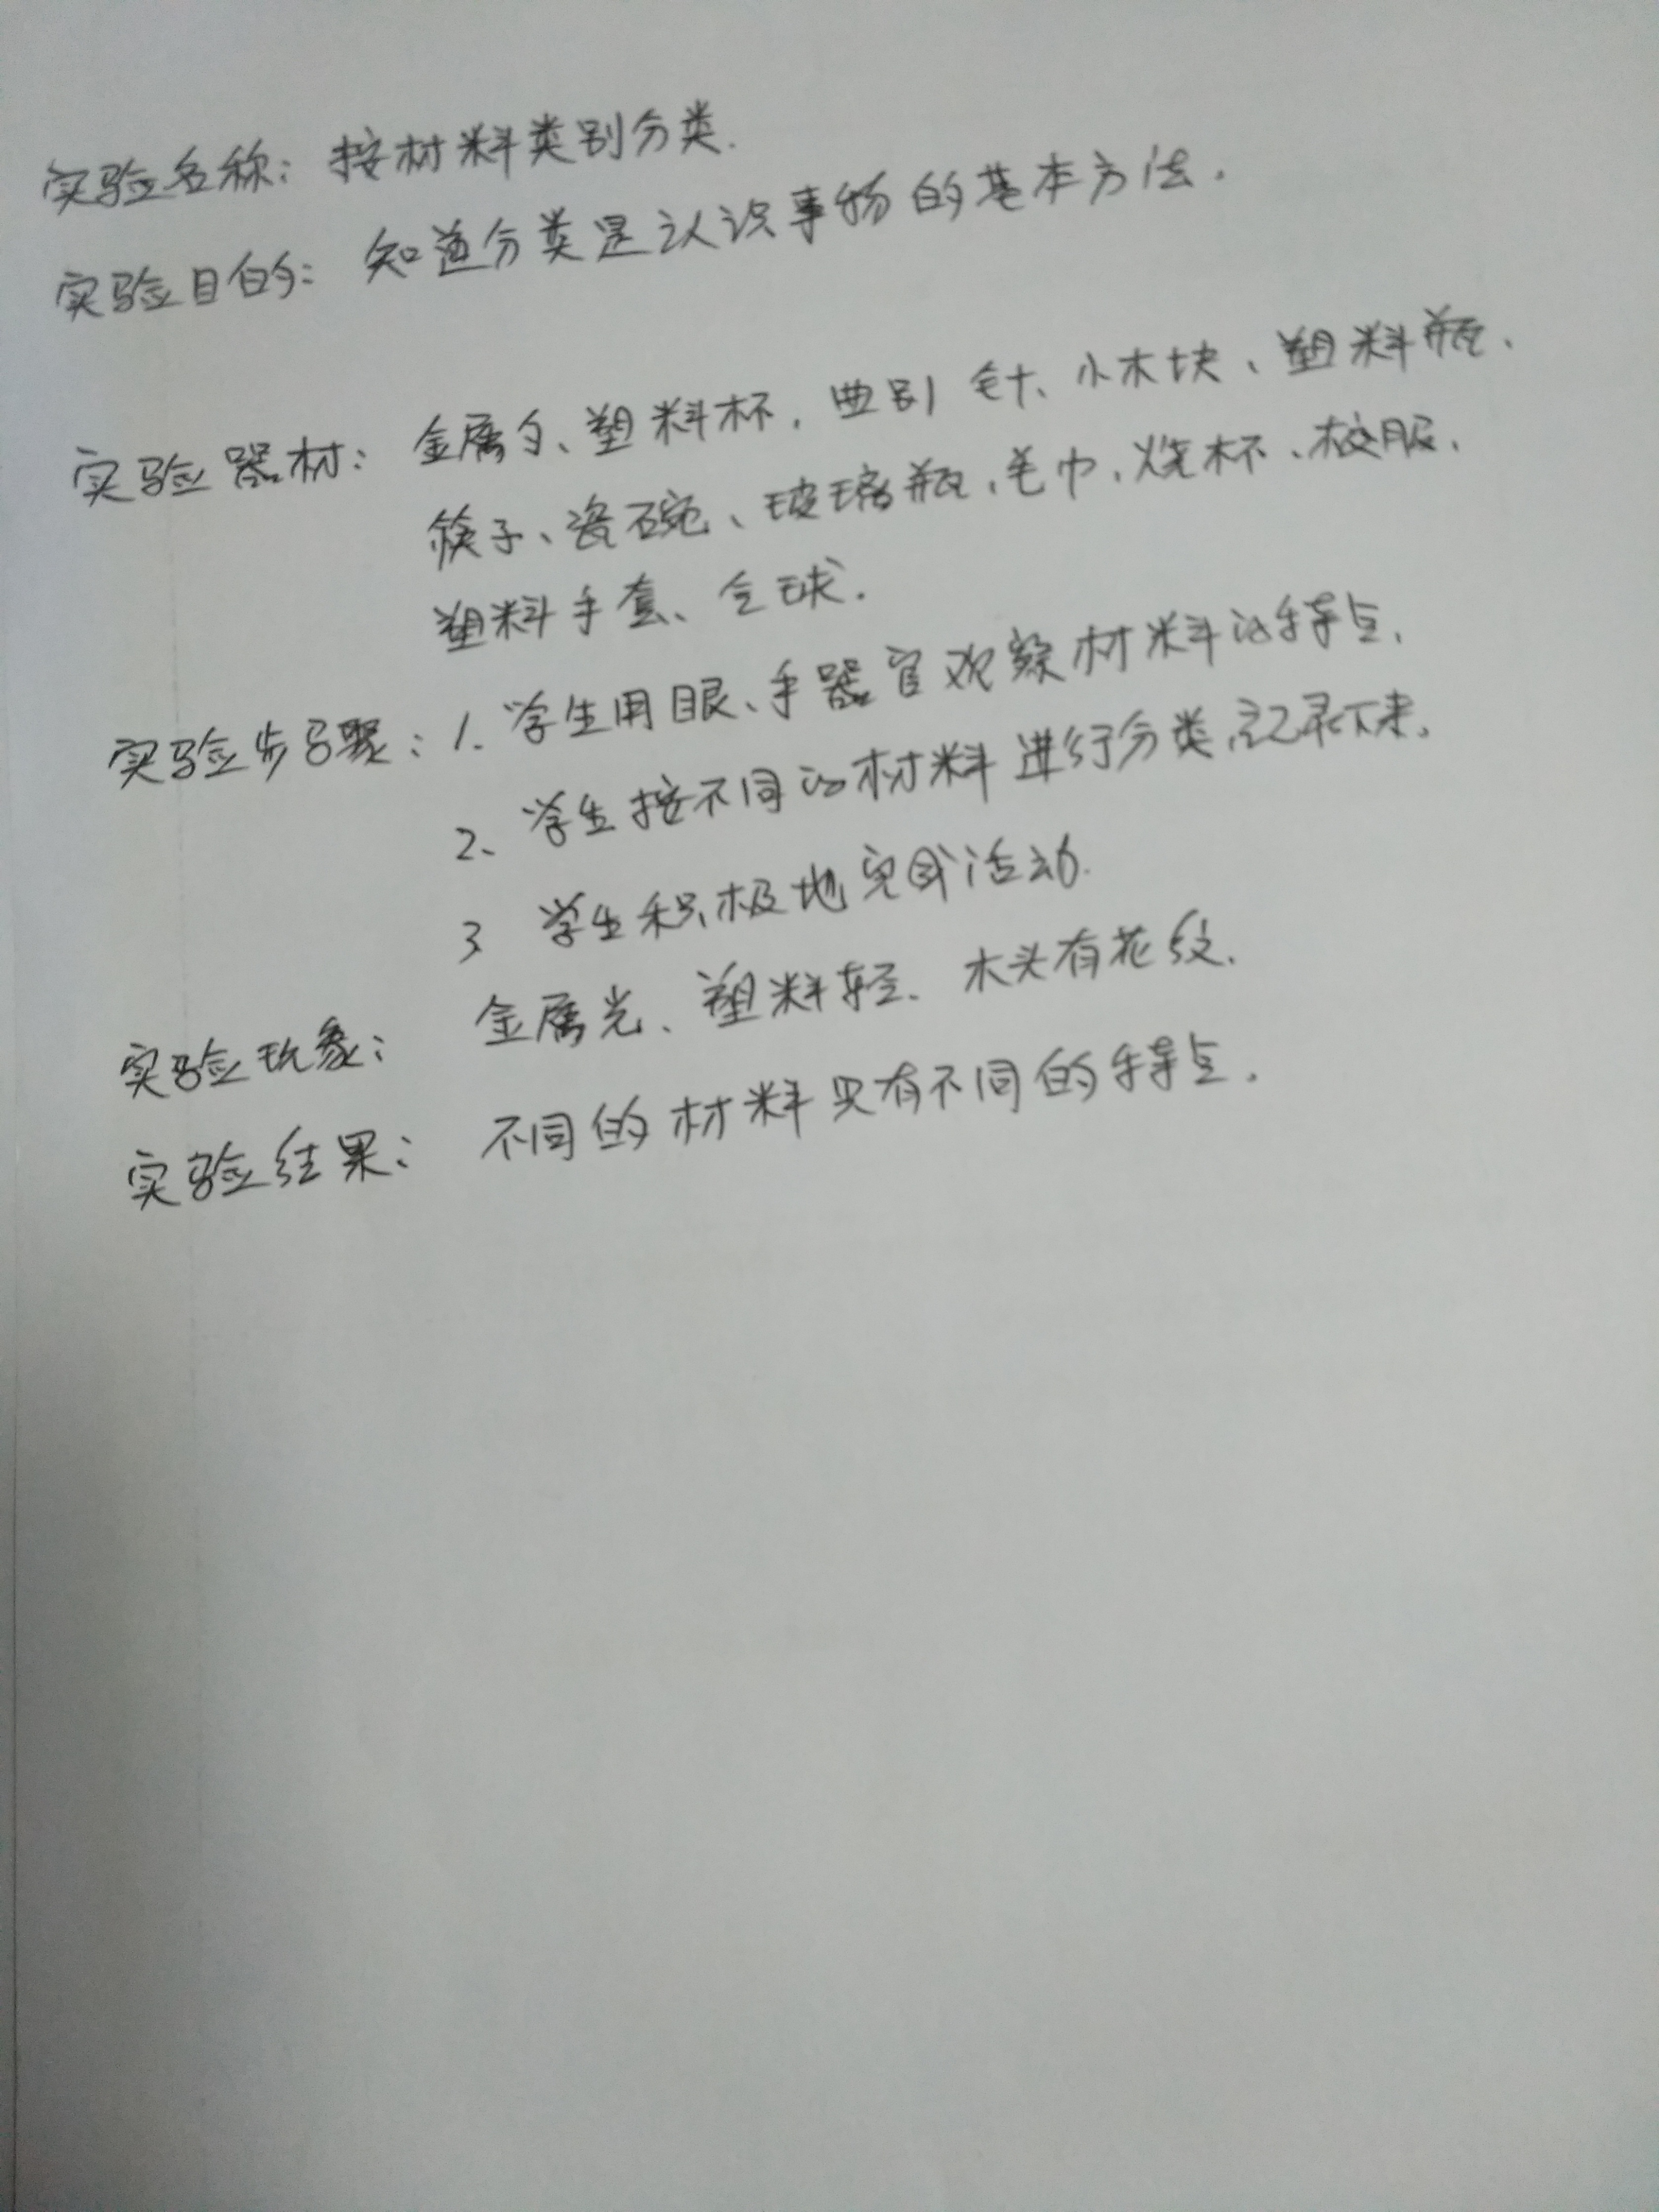 实验名称：按材料类别分类.
实验目的：知道分类是认识事物的基本方法.
实验器材：金属勺、塑料杯，曲别针、小木块、塑料瓶、
筷子、瓷碗、玻璃瓶、毛巾、烧杯、校服、
塑料手套、气球.
实验步骤：1. 学生用眼、手器官观察材料的特点.
2、学生按不同的材料进行分类,记录下来.
3 学生积极地完成活动.
实验现象：金属光、塑料轻、木头有花纹.
实验结果：不同的材料具有不同的特点.